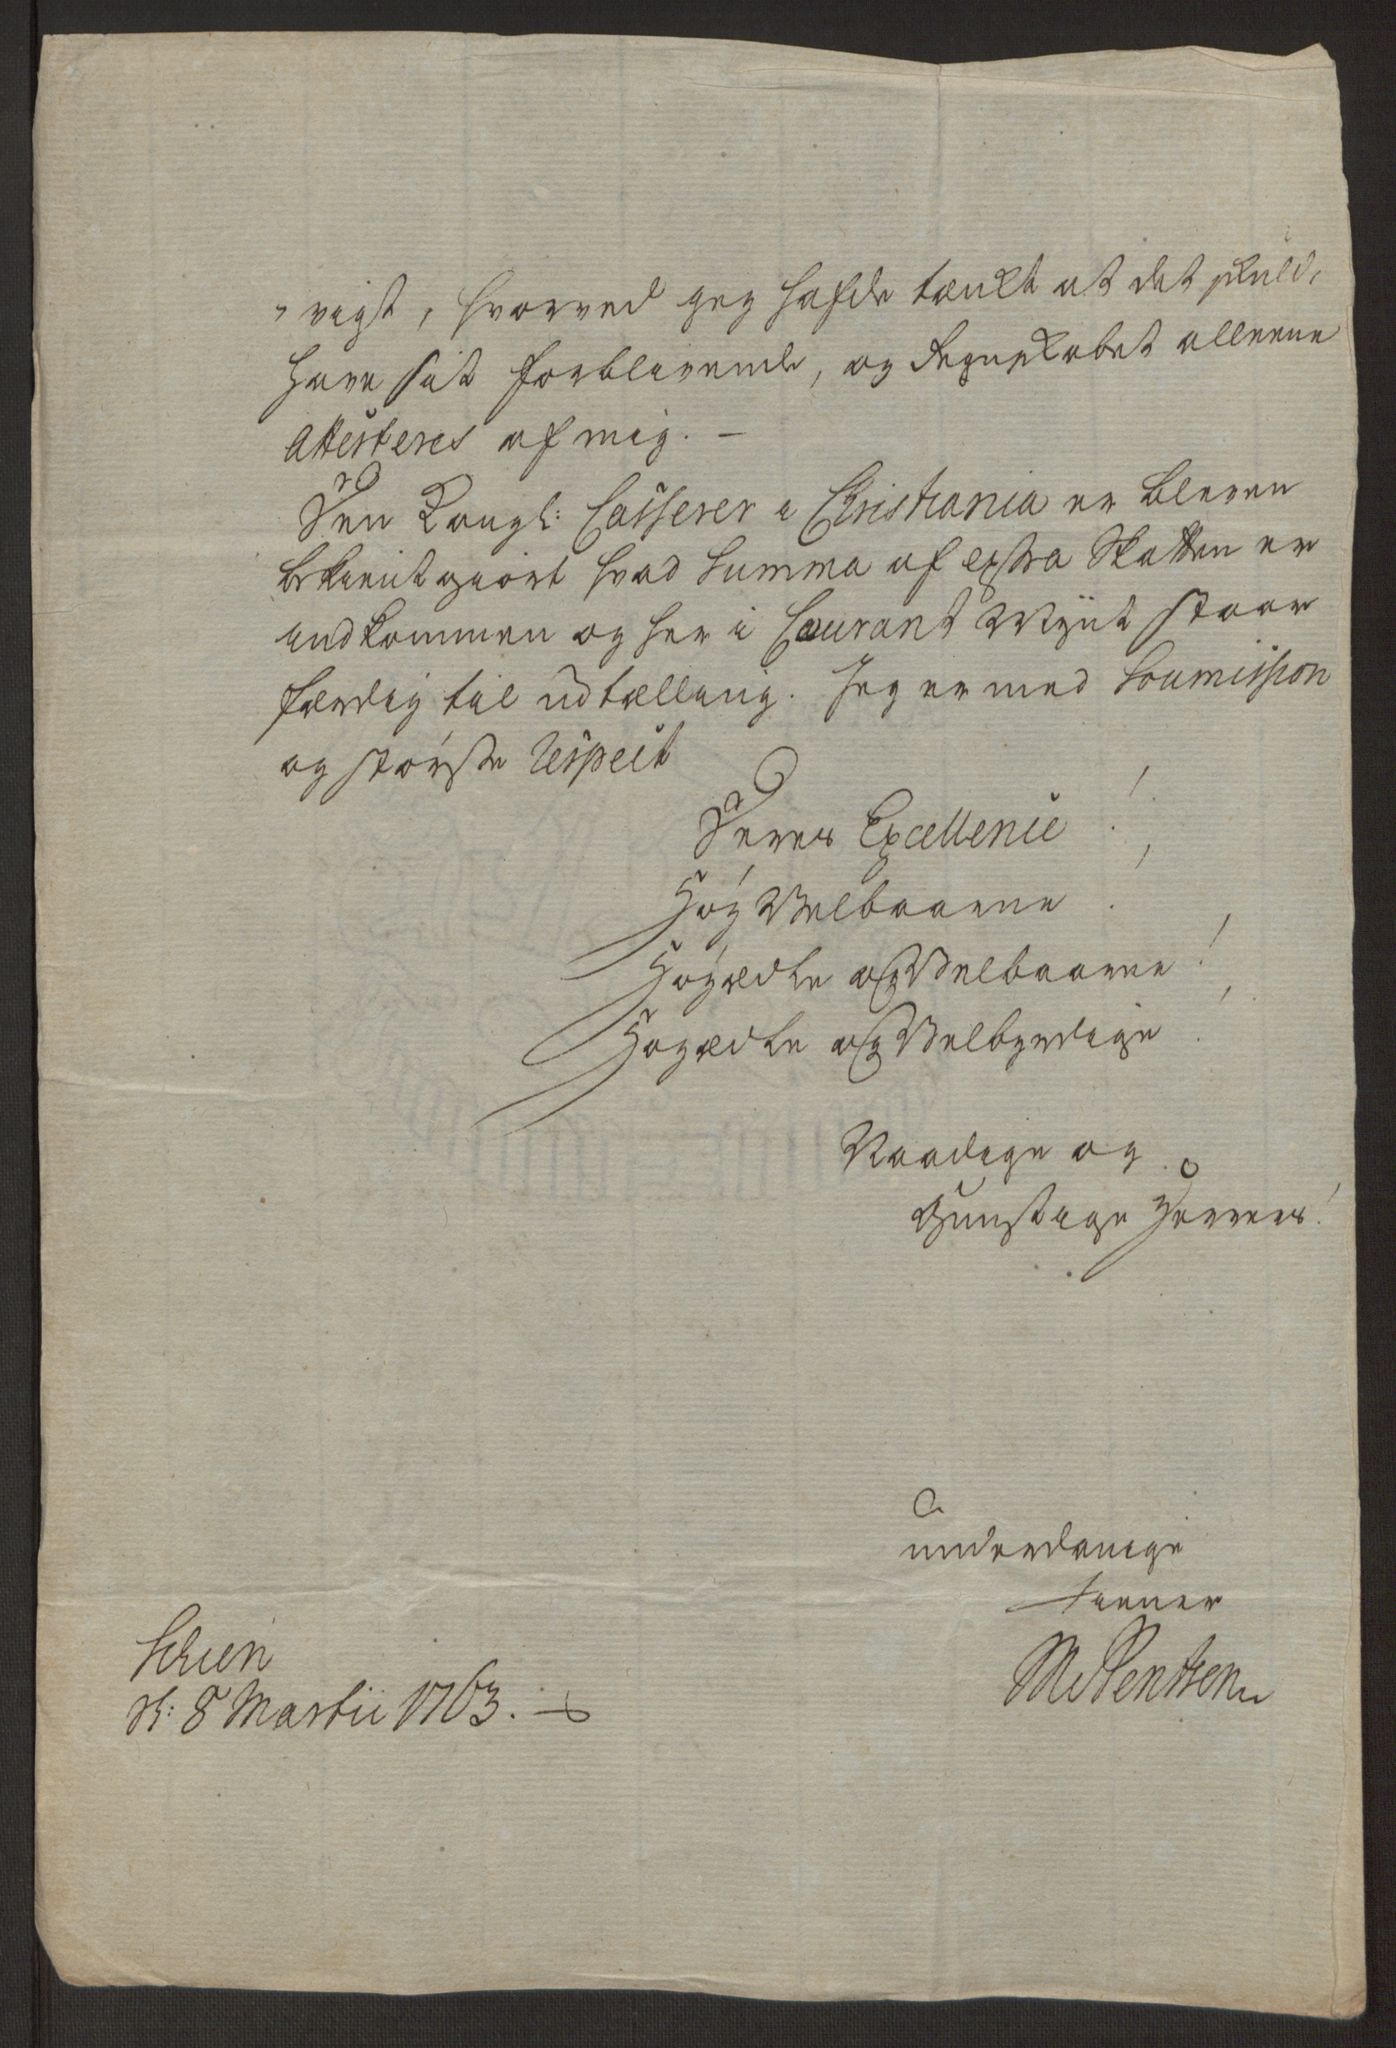 vigt, hvorved jeg hafde tænkt at det skuld,
have sit forblivende, og Regnskabet alleene
Attesteres af mig. –
Den Kongl: Casserer i Christiania er bleven
bekientgiort hvad Summa af extra Skatten er
indkommen og her i Courant Mynt staar
færdig til udtælling. Jeg er med Soumission
og største Respect
Deres Excellence!
Høy Velbaarne!
Høyædle og Velbaarne!
Høyædle og Velbyrdige!
Naadige og
Gunstige Herrer!
underdanige
tiener
Schien
d: 8 Martii 1763.